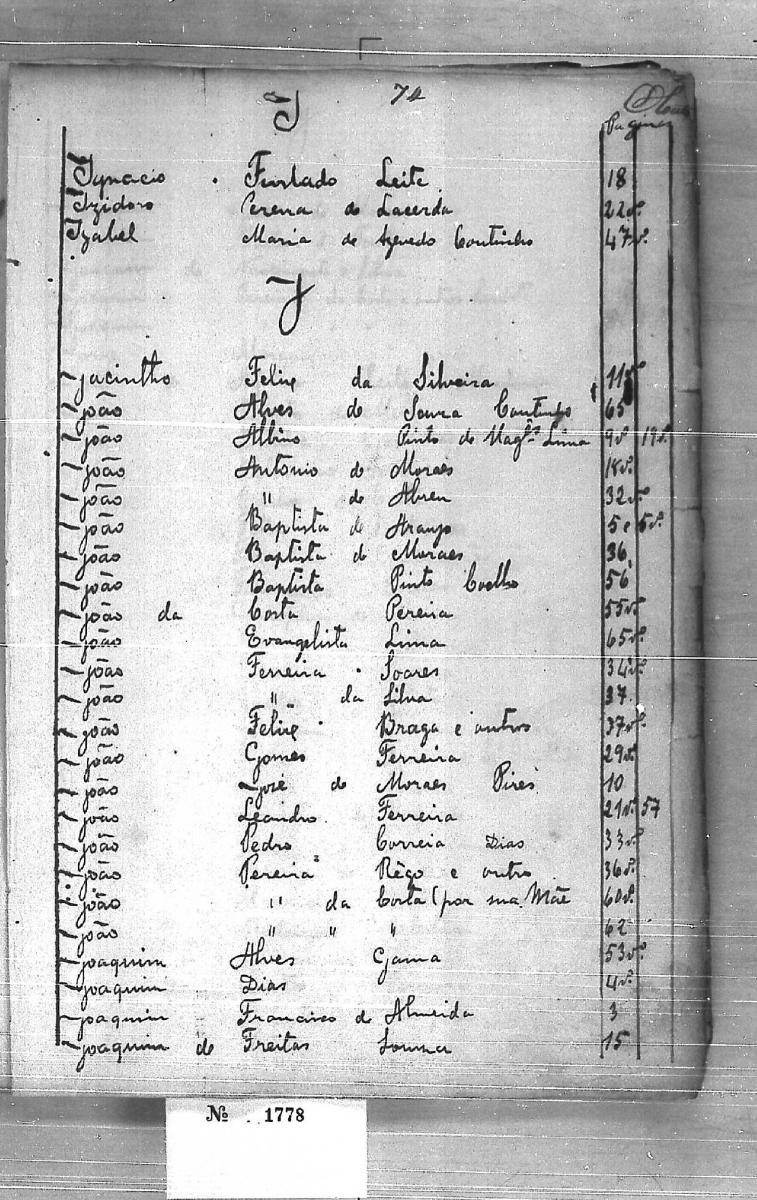 74
I
Pagina
Ignacio Furtado Leite 18
Izidoro Pereira de Lacerda 22vº
Izabel Maria de Azevedo Coutinho 47vº
J
Jacintho Felix da Silveira 11vº
João Alves de Souza Coutinho 65
João Albino Pinto de Magªˢ Lima 9vº 19vº
João Antonio de Moraes 18vº
João " de Abreu 32vº
João Baptista de Araujo 5 e 5vº
João Baptista de Moraes 36
João Baptista Pinto Coelho 56
João da Costa Pereira 55vº
João Evangelista Lima 65vº
João Ferreira Soares 34vº
João " da Silva 37
João Felix Braga e outros 37vº
João Gomes Ferreira 29vº
João José de Moraes Pires 10
João Leandro Ferreira 21vº 57
João Pedro Correia Dias 33vº
João Pereira Rêgo e outro 36vº
João " da Costa (por sua Mãe 60vº
João " " " 62
Joaquim Alves Gama 53vº
Joaquim Dias 4vº
Joaquim Francisco de Almeida 3
Joaquim de Freitas 15
Nº 1778